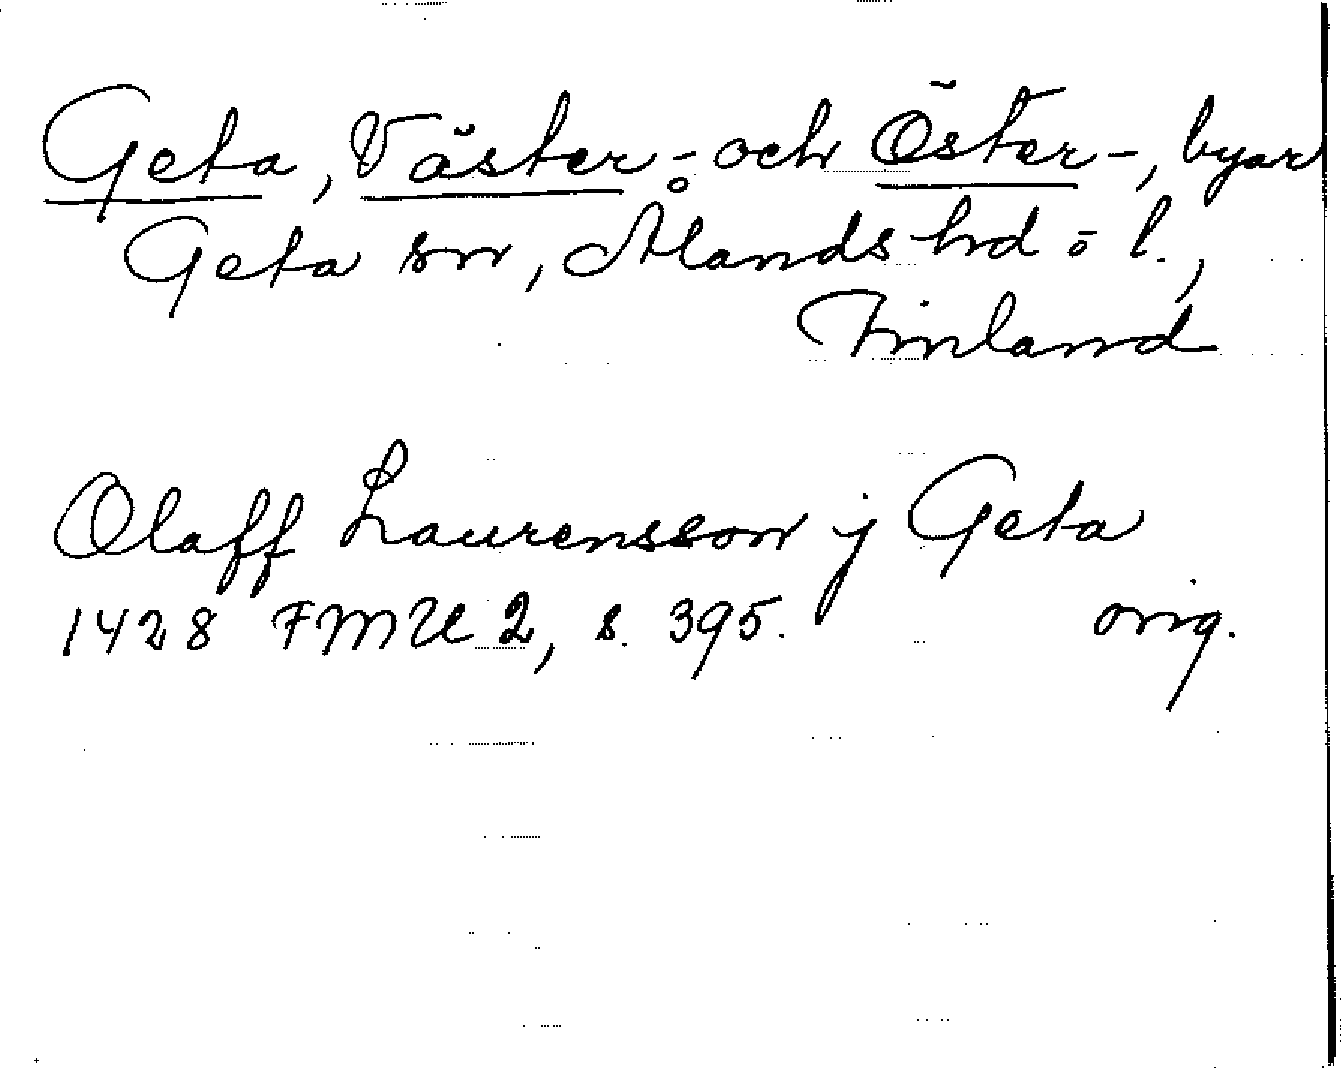 Geta, Väster- och Öster-, byar
Geta sn, Ålands hd o l.,
Finland
Olaff Laurensson j Geta
1428 FMU 2, s. 395. orig.